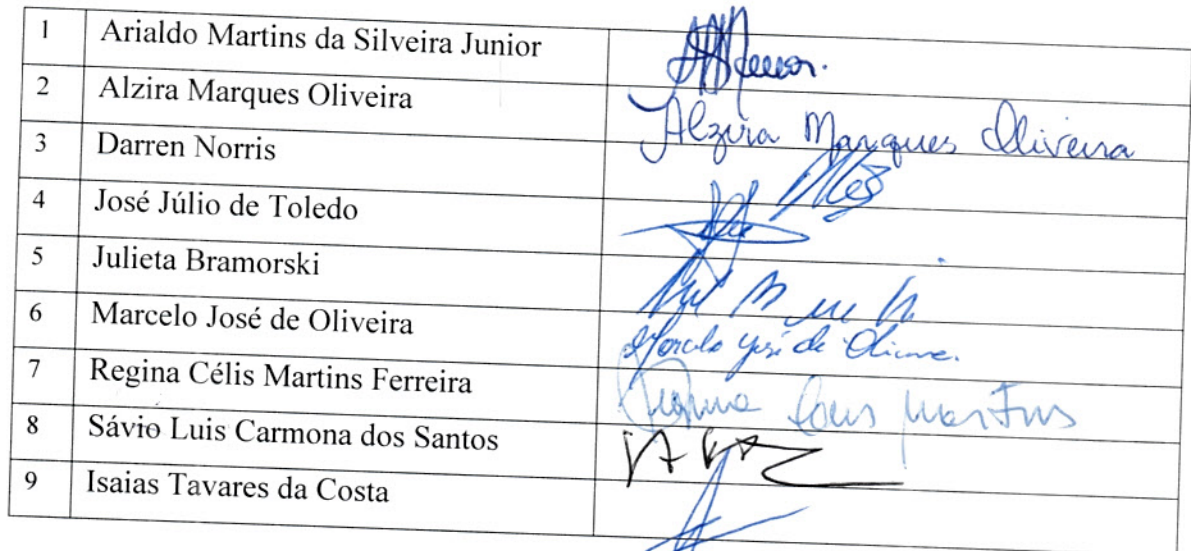 1 Arialdo Martins da Silveira Junior
2 Alzira Marques Oliveira Alzira Marques Oliveira
3 Darren Norris
4 José Júlio de Toledo
5 Julieta Bramorski
6 Marcelo José de Oliveira Marcelo José de
7 Regina Célis Martins Ferreira Martins
8 Sávio Luis Carmona dos Santos
9 Isaias Tavares da Costa